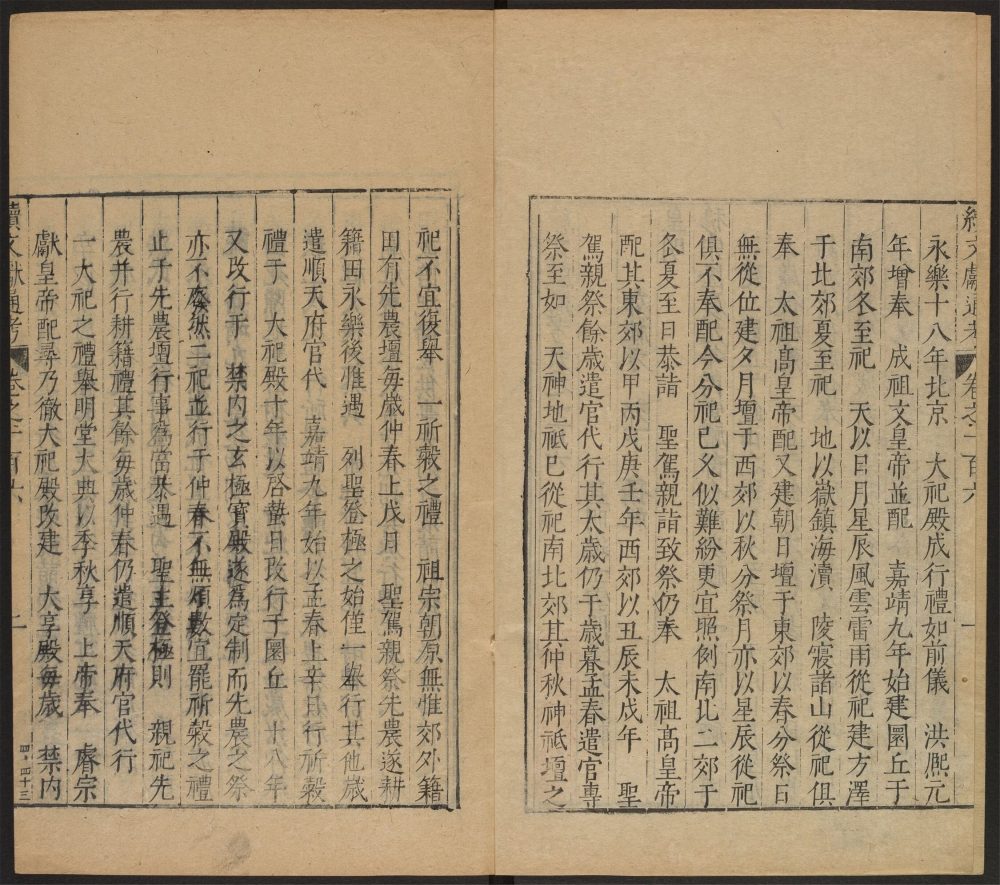 續文獻通考 卷之一百六 一
永樂十八年北京 大祀殿成行禮如前儀 洪熈元
年增奉 成祖文皇帝並配 嘉靖九年始建圜丘于
南郊冬至祀 天以日月星辰風雲雷雨從祀建方澤
于北郊夏至祀 地以嶽鎮海瀆 陵寢諸山從祀俱
奉 太祖髙皇帝配又建朝日壇于東郊以春分祭日
無從位建夕月壇于西郊以秋分祭月亦以星辰從祀
俱不奉配今分祀已乆似難紛更宜照例南北二郊于
冬夏至日恭詣 聖駕親詣致祭仍奉 太祖髙皇帝
配其東郊以甲丙戊庚壬年西郊以丑辰未戌年 聖
駕親祭餘歲遣官代行其太歲仍于歲暮孟春遣官專
祭至如 天神地祇巳從祀南北郊其仲秋神祇壇之
祀不宜復舉 一祈榖之禮 祖宗朝原無惟郊外籍
田有先農壇每歲仲春上戊日 聖駕親祭先農遂耕
籍田永樂後惟遇 列聖登極之始僅一舉行其他歲
遣順天府官代 嘉靖九年始以孟春上辛日行祈榖
禮于 大祀殿十年以啓蟄日改行于圜丘 十八年
又改行于 禁内之玄極寳殿遂爲定制而先農之祭
亦不廢然二祀並行于仲春不無煩數宜罷祈榖之禮
止于先農壇行事爲當恭遇 聖主登極則 親祀先
農并行耕籍禮其餘每歲仲春仍遣順天府官代行
一大祀之禮舉明堂大典以季秋享 上帝奉 睿宗
獻皇帝配尋乃徹大祀殿改建 大享殿每歲 禁内
續文獻通考 卷之一百六 二
四·四十三